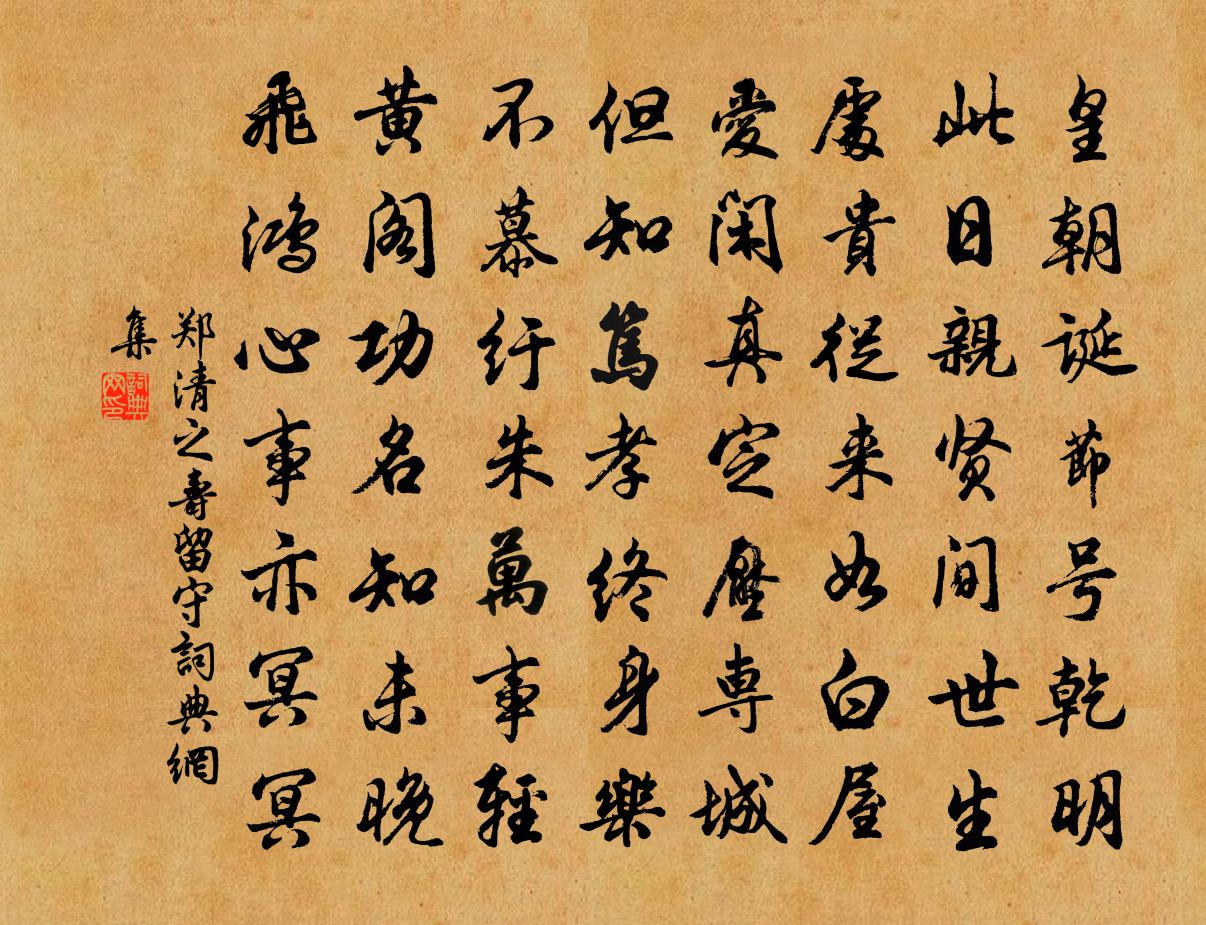 皇朝誕節号乾明
此日親贤间世生
處貴從来如白屋
愛闲真定壓専城
但知篤孝終身樂
不慕纡朱萬事輕
黄阁功名知未晚
飛鸿心事亦冥冥
郑清之壽留守詞典網
集
詞典网印